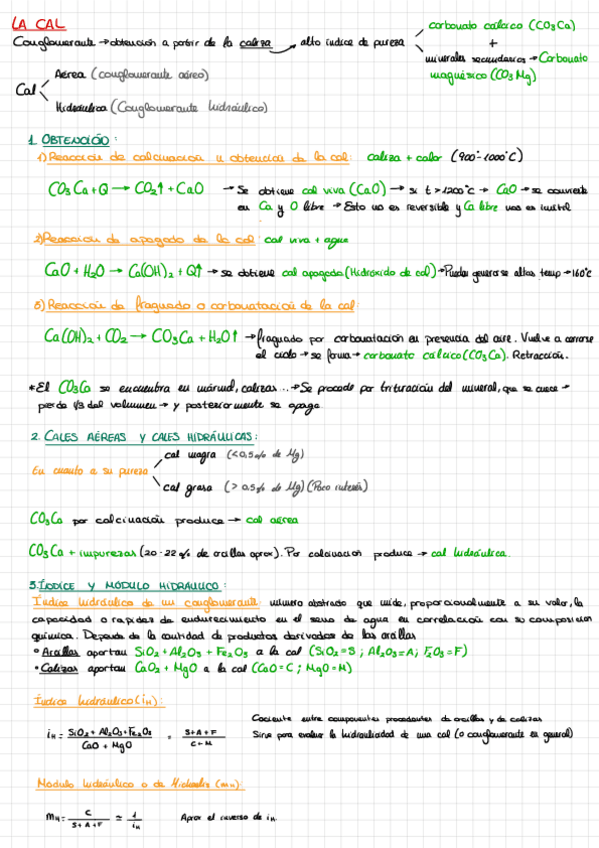 LA CAL
Conglomerante → obtención a partir de la caliza → alto índice de pureza
carbonato cálcico (CO₃Ca)
+
minerales secundarios → Carbonato
magnésico (CO₃Mg)
Cal
Aérea (conglomerante aéreo)
Hidráulica (Conglomerante hidráulico)
1. OBTENCIÓN:
1) Reacción de calcinación u obtención de la cal: caliza + calor (900°-1000°C)
CO₃Ca + Q → CO₂↑ + CaO → Se obtiene cal viva (CaO) → si t > 1200°C → CaO → se convierte
en Ca y O libre → Esto no es reversible y Ca libre nos es inútil
2) Reacción de apagado de la cal: cal viva + agua
CaO + H₂O → Ca(OH)₂ + Q↑ → se obtiene cal apagada (Hidróxido de cal) → Puede generarse altas temp → 160°C
3) Reacción de fraguado o carbonatación de la cal:
Ca(OH)₂ + CO₂ → CO₃Ca + H₂O↑ → fraguado por carbonatación en presencia del aire. Vuelve a cerrarse
el ciclo → se forma → carbonato cálcico (CO₃Ca). Retracción.
*El CO₃Ca se encuentra en mármol, calizas... → Se procede por trituración del mineral, que se cuece →
pierde 1/3 del volumen → y posteriormente se apaga.
2. CALES AÉREAS Y CALES HIDRÁULICAS:
En cuanto a su pureza
cal magra (<0,5% de Mg)
cal grasa (>0,5% de Mg) (Poco interés)
CO₃Ca por calcinación produce → cal aérea
CO₃Ca + impurezas (20-22% de arcillas aprox). Por calcinación produce → cal hidráulica.
3. ÍNDICE Y MÓDULO HIDRÁULICO:
Índice hidráulico de un conglomerante: número abstracto que mide, proporcionalmente a su valor, la
capacidad o rapidez de endurecimiento en el seno de agua en correlación con su composición
química. Depende de la cantidad de productos derivados de las arcillas
• Arcillas aportan SiO₂ + Al₂O₃ + Fe₂O₃ a la cal (SiO₂=S ; Al₂O₃=A ; F₂O₃=F)
• Calizas aportan CaO₂ + MgO a la cal (CaO=C ; MgO=M)
Índice hidráulico (iH):
iH = SiO₂ + Al₂O₃ + Fe₂O₃ / CaO + MgO = S+A+F / C+M
Cociente entre componentes procedentes de arcillas y de calizas
Sirve para evaluar la hidraulicidad de una cal (o conglomerante en general)
Módulo hidráulico o de Michaelis (mH):
mH = C / S+A+F ≃ 1 / iH Aprox el inverso de iH.